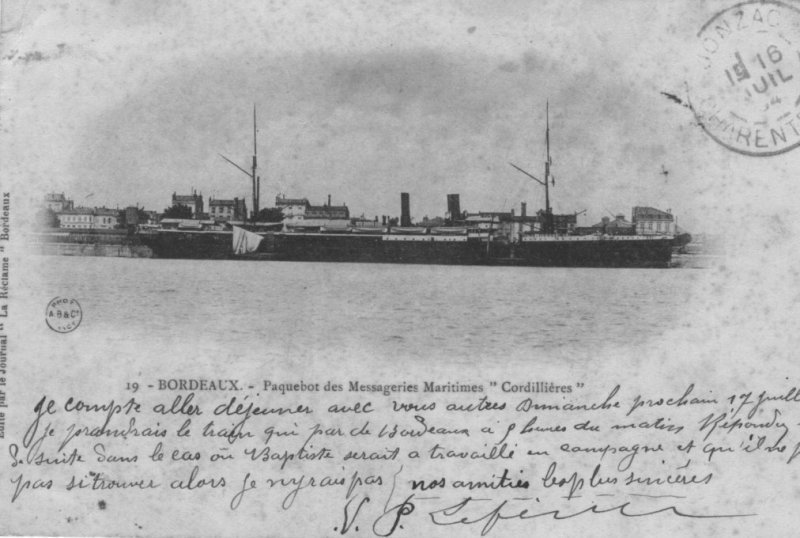 JONZAC
16
JUIL
04
CHARENTE
Edité par le Journal " La Réclame " Bordeaux
PHOT
A.B & Cie
19 - BORDEAUX. - Paquebot des Messageries Maritimes " Cordillières "
Je compte aller déjeuner avec vous autres Dimanche prochain 17 juill
je prandrais le train qui par de Bordeaux à 9 heures du matin Répondez
de suite dans le cas où Baptiste serait a travaillé en campagne et qu'il ne p
pas si trouver alors je nyrais pas nos amitiés les plus sincéres
V. P.